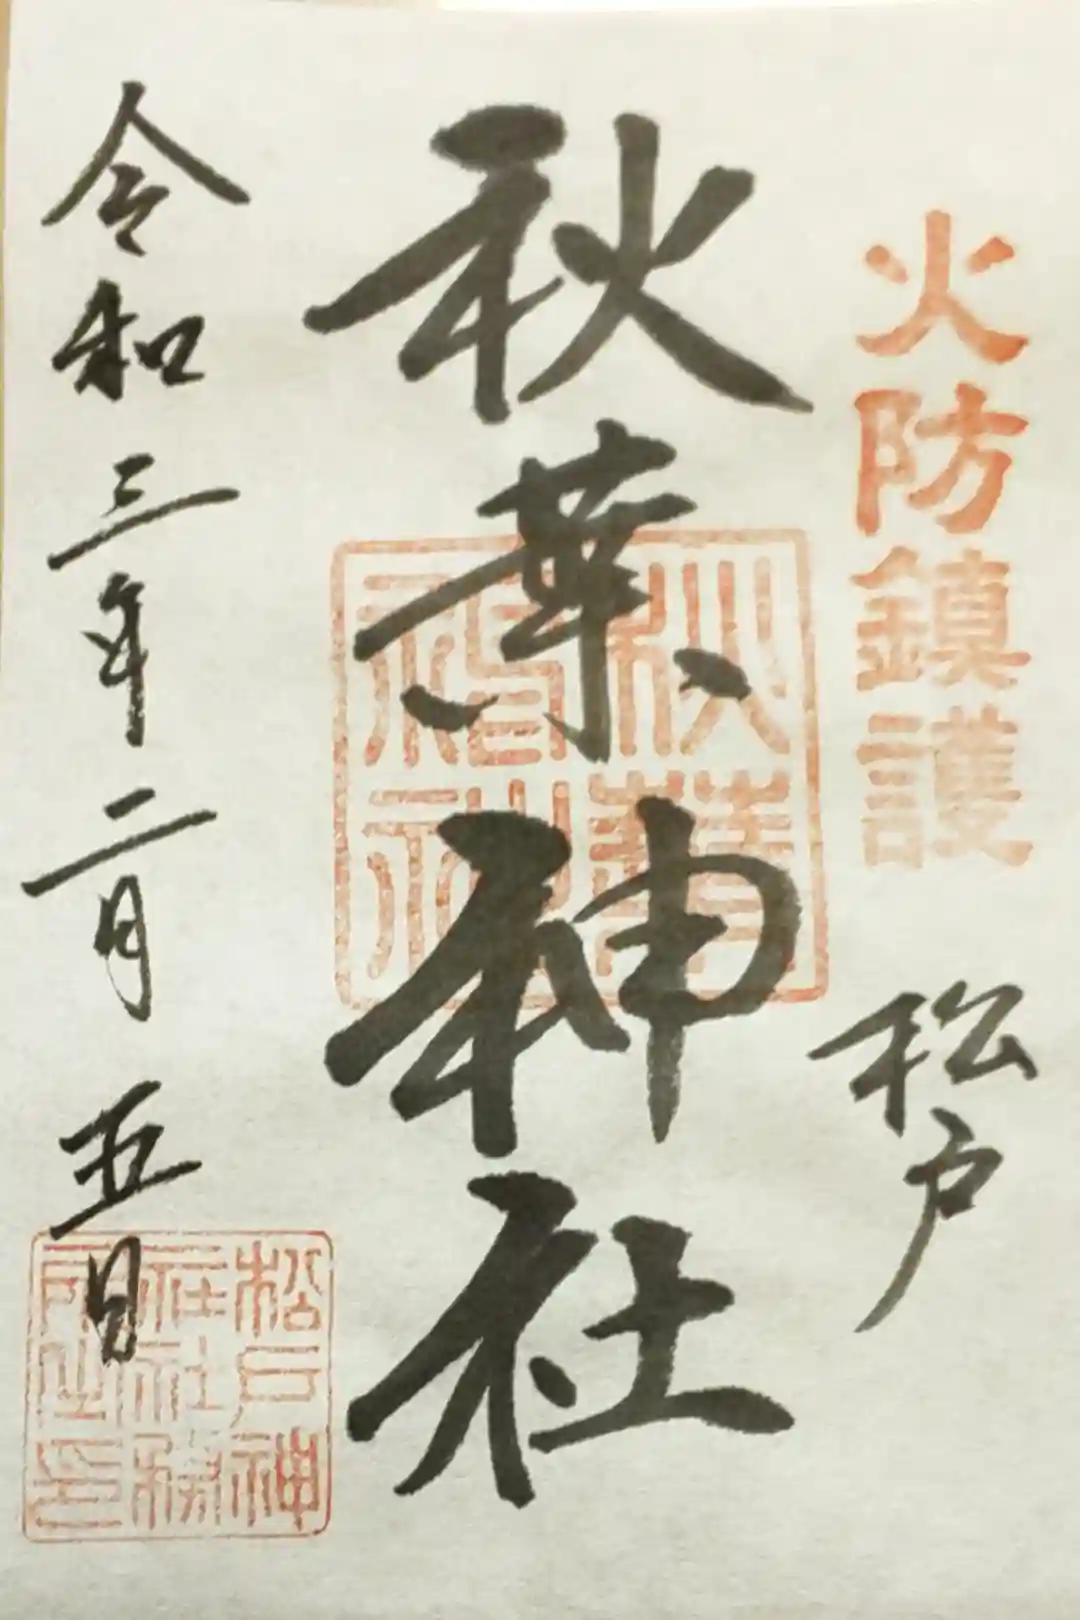 火防鎮護
松戸
秋葉神社
秋葉
神社
令和三年二月五日
松戸神
社社務
所之印